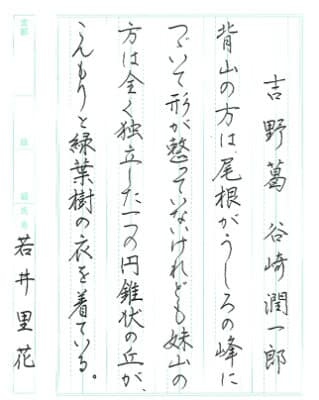 吉野葛 谷崎潤一郎
背山の方は、尾根がうしろの峰に
つゞいて形が整っていないけれども妹山の
方は全く独立した一つの円錐状の丘が、
こんもりと緑葉樹の衣を着ている。
支部
級
氏名
若井里花